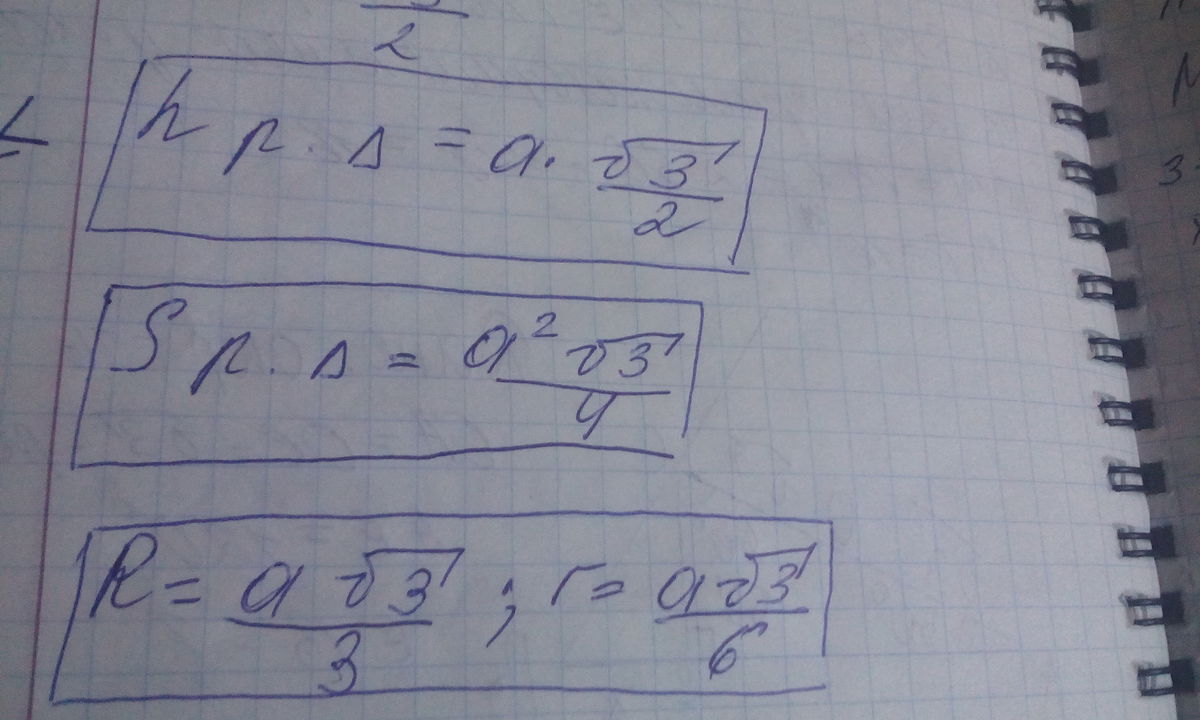 2
h р. Δ = a · √3/2
S р. Δ = a² √3/4
R = a √3/3 ; r = a√3/6